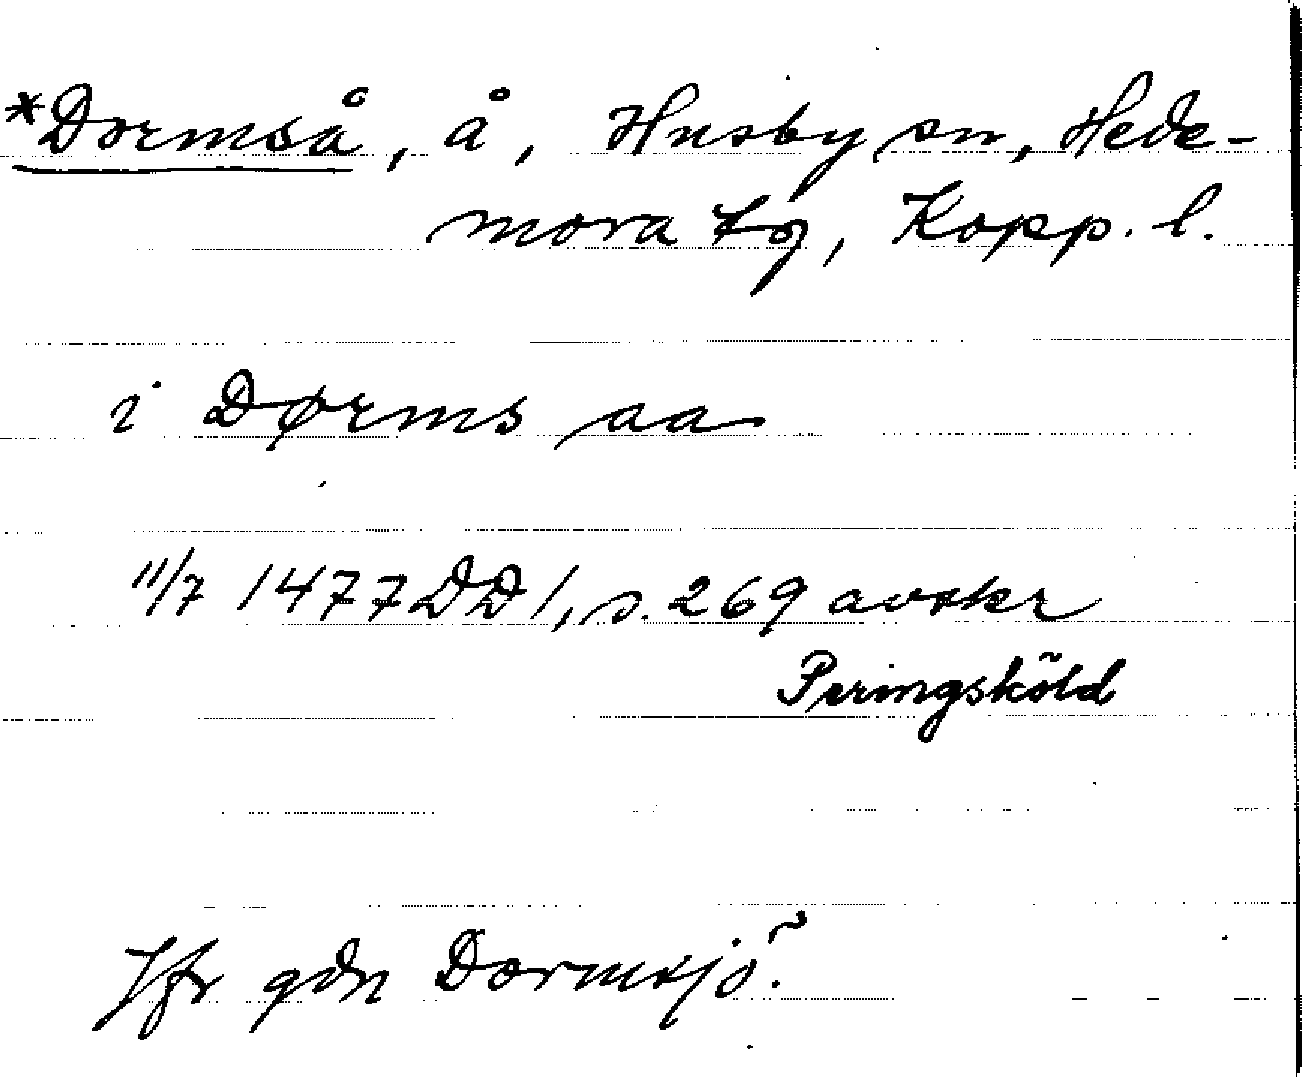 *Dormså, å, Husby sn, Hede-
mora tg, Kopp. l.
i Dørms aa
11/7 1477 DD 1, s. 269 avskr
Peringsköld
Jfr gdn Dormsjö.